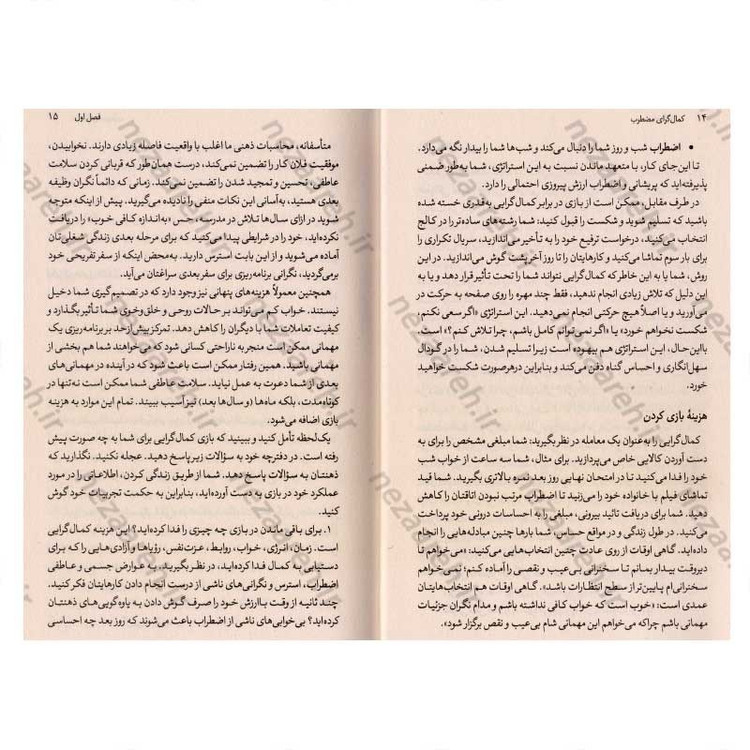 ۱۴ کمال‌گرای مضطرب
• اضطراب شب و روز شما را دنبال می‌کند و شب‌ها شما را بیدار نگه می‌دارد.
تا این‌جای کار، با متعهد ماندن نسبت به این استراتژی، شما به‌طور ضمنی
پذیرفته‌اید که پریشانی و اضطراب ارزش پیروزی احتمالی را دارد.
در طرف مقابل، ممکن است از بازی در برابر کمال‌گرایی به‌قدری خسته شده
باشید که تسلیم شوید و شکست را قبول کنید: شما رشته‌های ساده‌تر را در کالج
انتخاب می‌کنید، درخواست ترفیع خود را به تأخیر می‌اندازید، سریال تکراری را
برای بار سوم تماشا می‌کنید و کارهایتان را تا روز آخر پشت گوش می‌اندازید. در این
روش، شما یا به این خاطر که کمال‌گرایی نتواند شما را تحت تأثیر قرار دهد و یا به
این دلیل که تلاش زیادی انجام ندهید، فقط چند مهره را روی صفحه به حرکت در
می‌آورید و یا اصلاً هیچ حرکتی انجام نمی‌دهید. این استراتژی «اگر سعی نکنم،
شکست نخواهم خورد» یا «اگر نمی‌توانم کامل باشم، چرا تلاش کنم؟» است.
بااین‌حال، این استراتژی هم بیهوده است زیرا تسلیم شدن، شما را در گودال
سهل‌انگاری و احساس گناه دفن می‌کند و بنابراین درهرصورت شکست خواهید
خورد.
هزینهٔ بازی کردن
کمال‌گرایی را به‌عنوان یک معامله در نظر بگیرید: شما مبلغی مشخص را برای به
دست آوردن کالایی خاص می‌پردازید. برای مثال، شما سه ساعت از خواب شب
خود را فدا می‌کنید تا در امتحان نهایی روز بعد نمره بالاتری بگیرید. شما قید
تماشای فیلم با خانواده خود را می‌زنید تا اضطراب مرتب نبودن اتاقتان را کاهش
دهید. شما برای دریافت تائید بیرونی، مبلغی را به احساسات درونی خود پرداخت
می‌کنید. در طول زندگی و در مواقع حساس، شما بارها چنین مبادله‌هایی را انجام
داده‌اید. گاهی اوقات از روی عادت چنین انتخاب‌هایی می‌کنید: «می‌خواهم تا
دیروقت بیدار بمانم تا سخنرانی بی‌عیب و نقصی را آماده کنم؛ نمی‌خواهم
سخنرانی‌ام پایین‌تر از سطح انتظارات باشد». گاهی اوقات هم انتخاب‌هایتان
عمدی است: «خوب است که خواب کافی نداشته باشم و مدام نگران جزئیات
مهمانی باشم چراکه می‌خواهم این مهمانی شام بی‌عیب و نقص برگزار شود».
فصل اول ۱۵
متأسفانه، محاسبات ذهنی ما اغلب با واقعیت فاصله زیادی دارند. نخوابیدن،
موفقیت فلان کار را تضمین نمی‌کند، درست همان‌طور که قربانی کردن سلامت
عاطفی، تحسین و تمجید شدن را تضمین نمی‌کند. زمانی که دائماً نگران وظیفه
بعدی هستید، به‌آسانی این نکات منفی را نادیده می‌گیرید. پیش از اینکه متوجه
شوید در ازای سال‌ها تلاش در مدرسه، حس «به‌اندازه کافی خوب» را دریافت
نکرده‌اید، خود را در شرایطی پیدا می‌کنید که برای مرحله بعدی زندگی شغلی‌تان
آماده می‌شوید و از این بابت استرس دارید. به‌محض اینکه از سفر تفریحی خود
برمی‌گردید، نگرانی برنامه‌ریزی برای سفر بعدی سراغتان می‌آید.
همچنین معمولاً هزینه‌های پنهانی نیز وجود دارد که در تصمیم‌گیری شما دخیل
نیستند. خواب کم می‌تواند بر حالات روحی و خلق‌وخوی شما تأثیر بگذارد و
کیفیت تعاملات شما با دیگران را کاهش دهد. تمرکز بیش از حد بر برنامه‌ریزی یک
مهمانی ممکن است منجر به ناراحتی کسانی شود که می‌خواهند شما هم بخشی از
مهمانی باشید. همین رفتار ممکن است باعث شود که در آینده در مهمانی‌های
بعدی از شما دعوت به عمل نیاید. سلامت عاطفی شما ممکن است نه‌تنها در
کوتاه‌مدت، بلکه ماه‌ها (و سال‌ها بعد) نیز آسیب ببیند. تمام این موارد به هزینه
بازی اضافه می‌شود.
یک‌لحظه تأمل کنید و ببینید که بازی کمال‌گرایی برای شما به چه صورت پیش
رفته است. در دفترچه خود به سؤالات زیر پاسخ دهید. عجله نکنید. نگذارید که
ذهنتان به سؤالات پاسخ دهد. شما از طریق زندگی کردن، اطلاعاتی را در مورد
عملکرد خود در بازی به دست آورده‌اید، بنابراین به حکمت تجربیات خود گوش
کنید.
۱. برای باقی ماندن در بازی چه چیزی را فدا کرده‌اید؟ این هزینه کمال‌گرایی
است. زمان، انرژی، خواب، روابط، عزت‌نفس، رؤیاها و آزادی‌هایی را که برای
دستیابی به کمال فدا کرده‌اید، در نظر بگیرید. به عوارض جسمی و عاطفی
اضطراب، استرس و نگرانی‌های ناشی از درست انجام دادن کارهایتان فکر کنید.
چند ثانیه از وقت باارزش خود را صرف گوش دادن به یاوه‌گویی‌های ذهنتان
کرده‌اید؟ بی‌خوابی‌های ناشی از اضطراب باعث می‌شوند که روز بعد چه احساسی
nezaareh.ir